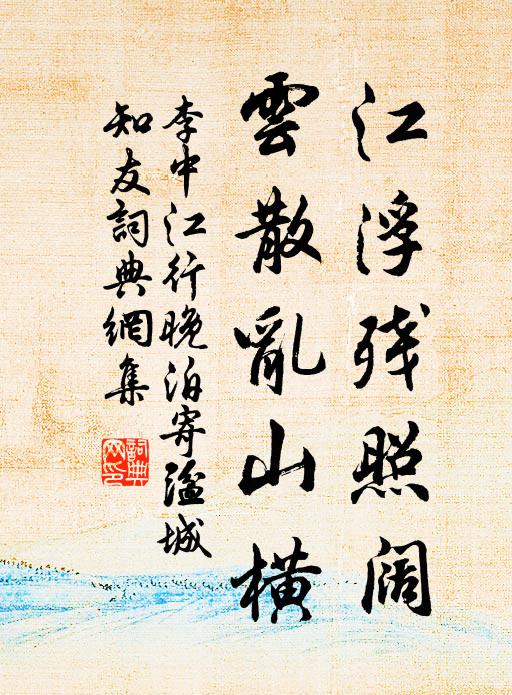 江浮残照阔
雲散亂山橫
李中江行晚泊寄湓城
知友詞典網集
詞典
网印